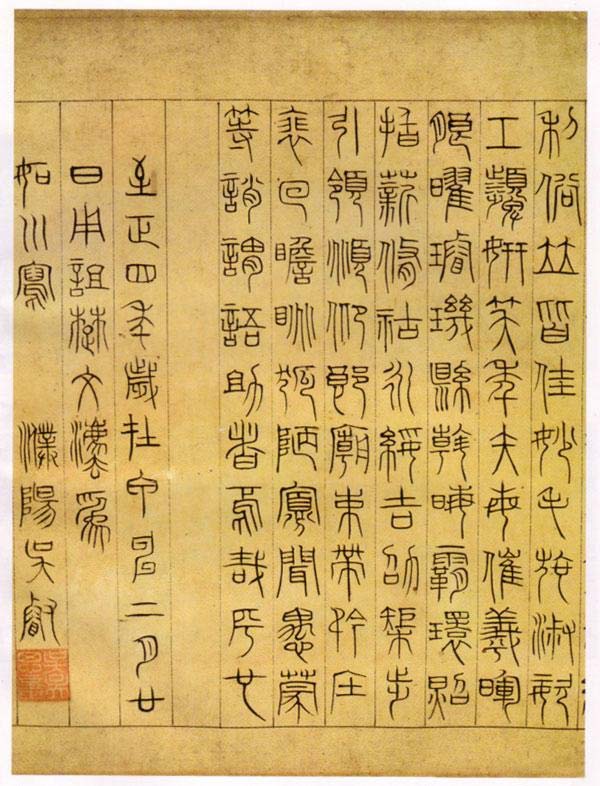 利俗竝皆佳妙毛施淑姿
工顰妍笑年矢每催羲暉
朗曜璿璣縣斡晦霸環照
指薪脩祜永綏吉劭榘步
引領頫仰郎廟束帶矜莊
裵回瞻眺孤陋寡聞愚蒙
等誚謂語助者焉哉乎也
至正四年歲在甲申二月廿
日用詛楚文灋爲
如川寫 濮陽吳叡